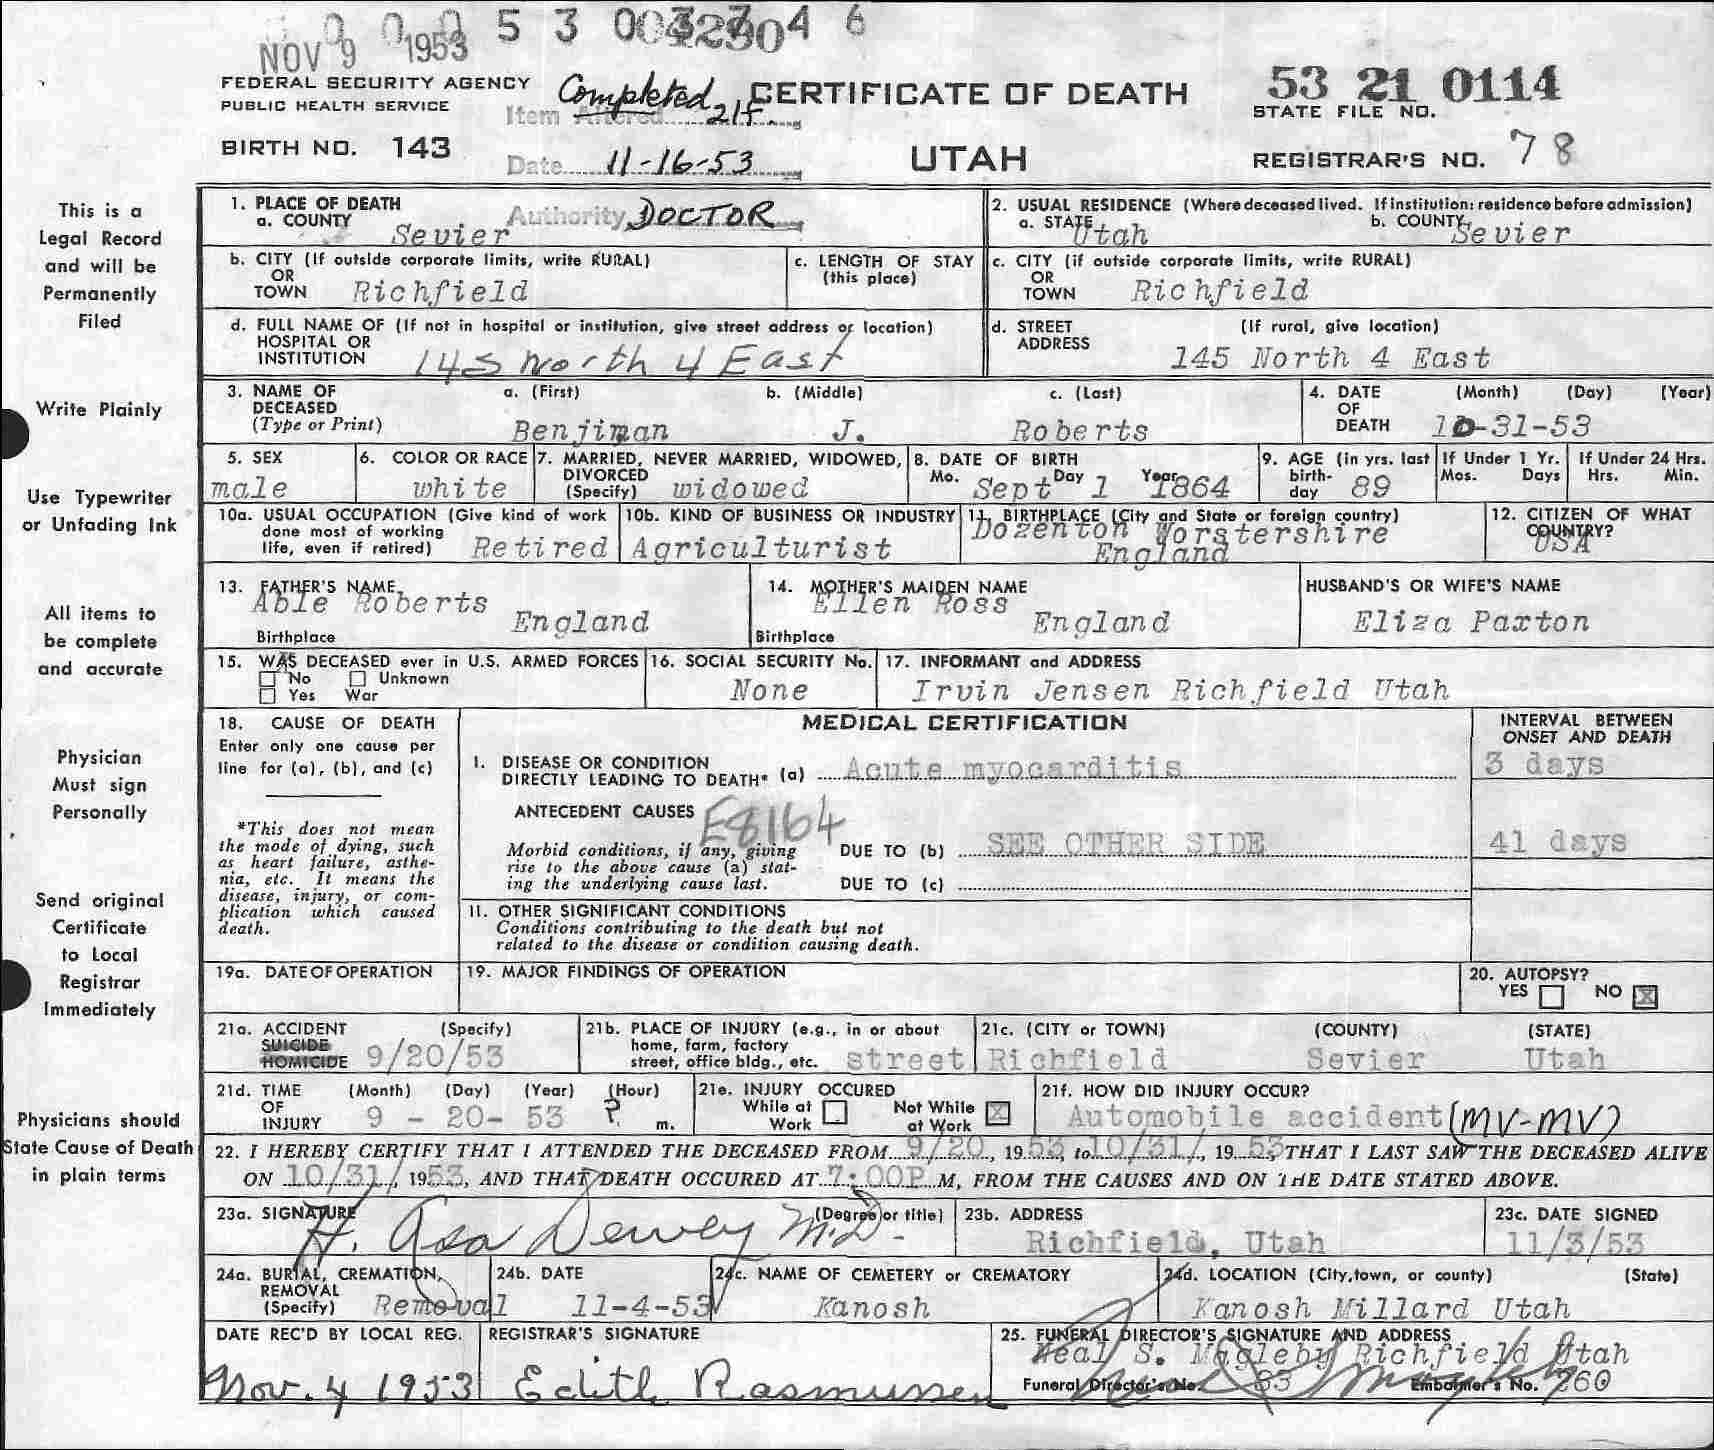 0 0 0 5 3 0 0 3 7 4 6
NOV 9 1953
FEDERAL SECURITY AGENCY
PUBLIC HEALTH SERVICE
Completed
Item Altered 21f.
CERTIFICATE OF DEATH
53 21 0114
STATE FILE NO.
BIRTH NO. 143
Date 11-16-53
UTAH
REGISTRAR'S NO. 78
This is a
Legal Record
and will be
Permanently
Filed
Write Plainly
Use Typewriter
or Unfading Ink
All items to
be complete
and accurate
Physician
Must sign
Personally
Send original
Certificate
to Local
Registrar
Immediately
Physicians should
State Cause of Death
in plain terms
1. PLACE OF DEATH
a. COUNTY Sevier
Authority DOCTOR
2. USUAL RESIDENCE (Where deceased lived. If institution: residence before admission)
a. STATE Utah b. COUNTY Sevier
b. CITY (If outside corporate limits, write RURAL)
OR
TOWN Richfield
c. LENGTH OF STAY
(this place)
c. CITY (if outside corporate limits, write RURAL)
OR
TOWN Richfield
d. FULL NAME OF (If not in hospital or institution, give street address or location)
HOSPITAL OR
INSTITUTION 145 North 4 East
d. STREET (If rural, give location)
ADDRESS
145 North 4 East
3. NAME OF a. (First) b. (Middle) c. (Last)
DECEASED
(Type or Print) Benjiman J. Roberts
4. DATE (Month) (Day) (Year)
OF
DEATH 10-31-53
5. SEX
male
6. COLOR OR RACE
white
7. MARRIED, NEVER MARRIED, WIDOWED,
DIVORCED
(Specify) widowed
8. DATE OF BIRTH
Mo. Sept Day 1 Year 1864
9. AGE (in yrs. last
birth-
day 89
If Under 1 Yr.
Mos. Days
If Under 24 Hrs.
Hrs. Min.
10a. USUAL OCCUPATION (Give kind of work
done most of working
life, even if retired) Retired
10b. KIND OF BUSINESS OR INDUSTRY
Agriculturist
11. BIRTHPLACE (City and State or foreign country)
Dozenton Worstershire
England
12. CITIZEN OF WHAT
COUNTRY?
USA
13. FATHER'S NAME
Able Roberts
England
Birthplace
14. MOTHER'S MAIDEN NAME
Ellen Ross
England
Birthplace
HUSBAND'S OR WIFE'S NAME
Eliza Paxton
15. WAS DECEASED ever in U.S. ARMED FORCES
No Unknown
Yes War
16. SOCIAL SECURITY No.
None
17. INFORMANT and ADDRESS
Irvin Jensen Richfield Utah
18. CAUSE OF DEATH
Enter only one cause per
line for (a), (b), and (c)
*This does not mean
the mode of dying, such
as heart failure, asthe-
nia, etc. It means the
disease, injury, or com-
plication which caused
death.
MEDICAL CERTIFICATION
INTERVAL BETWEEN
ONSET AND DEATH
I. DISEASE OR CONDITION
DIRECTLY LEADING TO DEATH* (a) Acute myocarditis
3 days
ANTECEDENT CAUSES E8164
Morbid conditions, if any, giving
rise to the above cause (a) stat-
ing the underlying cause last.
DUE TO (b) SEE OTHER SIDE
41 days
DUE TO (c)
II. OTHER SIGNIFICANT CONDITIONS
Conditions contributing to the death but not
related to the disease or condition causing death.
19a. DATE OF OPERATION
19. MAJOR FINDINGS OF OPERATION
20. AUTOPSY?
YES NO X
21a. ACCIDENT (Specify)
SUICIDE
HOMICIDE 9/20/53
21b. PLACE OF INJURY (e.g., in or about
home, farm, factory
street, office bldg., etc. street
21c. (CITY or TOWN) (COUNTY) (STATE)
Richfield Sevier Utah
21d. TIME (Month) (Day) (Year) (Hour)
OF
INJURY 9 - 20- 53 ? m.
21e. INJURY OCCURED
While at Not While
Work at Work X
21f. HOW DID INJURY OCCUR?
Automobile accident (MV-MV)
22. I HEREBY CERTIFY THAT I ATTENDED THE DECEASED FROM 9/20, 1953, to 10/31/, 1953, THAT I LAST SAW THE DECEASED ALIVE
ON 10/31/, 1953, AND THAT DEATH OCCURED AT 7:00P M, FROM THE CAUSES AND ON THE DATE STATED ABOVE.
23a. SIGNATURE (Degree or title)
H. Asa Dewey M.D.
23b. ADDRESS
Richfield, Utah
23c. DATE SIGNED
11/3/53
24a. BURIAL, CREMATION,
REMOVAL
(Specify) Removal
24b. DATE
11-4-53
24c. NAME OF CEMETERY or CREMATORY
Kanosh
24d. LOCATION (City, town, or county) (State)
Kanosh Millard Utah
DATE REC'D BY LOCAL REG.
Nov. 4 1953
REGISTRAR'S SIGNATURE
Edith Rasmussen
25. FUNERAL DIRECTOR'S SIGNATURE AND ADDRESS
Neal S. Magleby Richfield Utah
Funeral Director's No. 83 Embalmer's No. 260